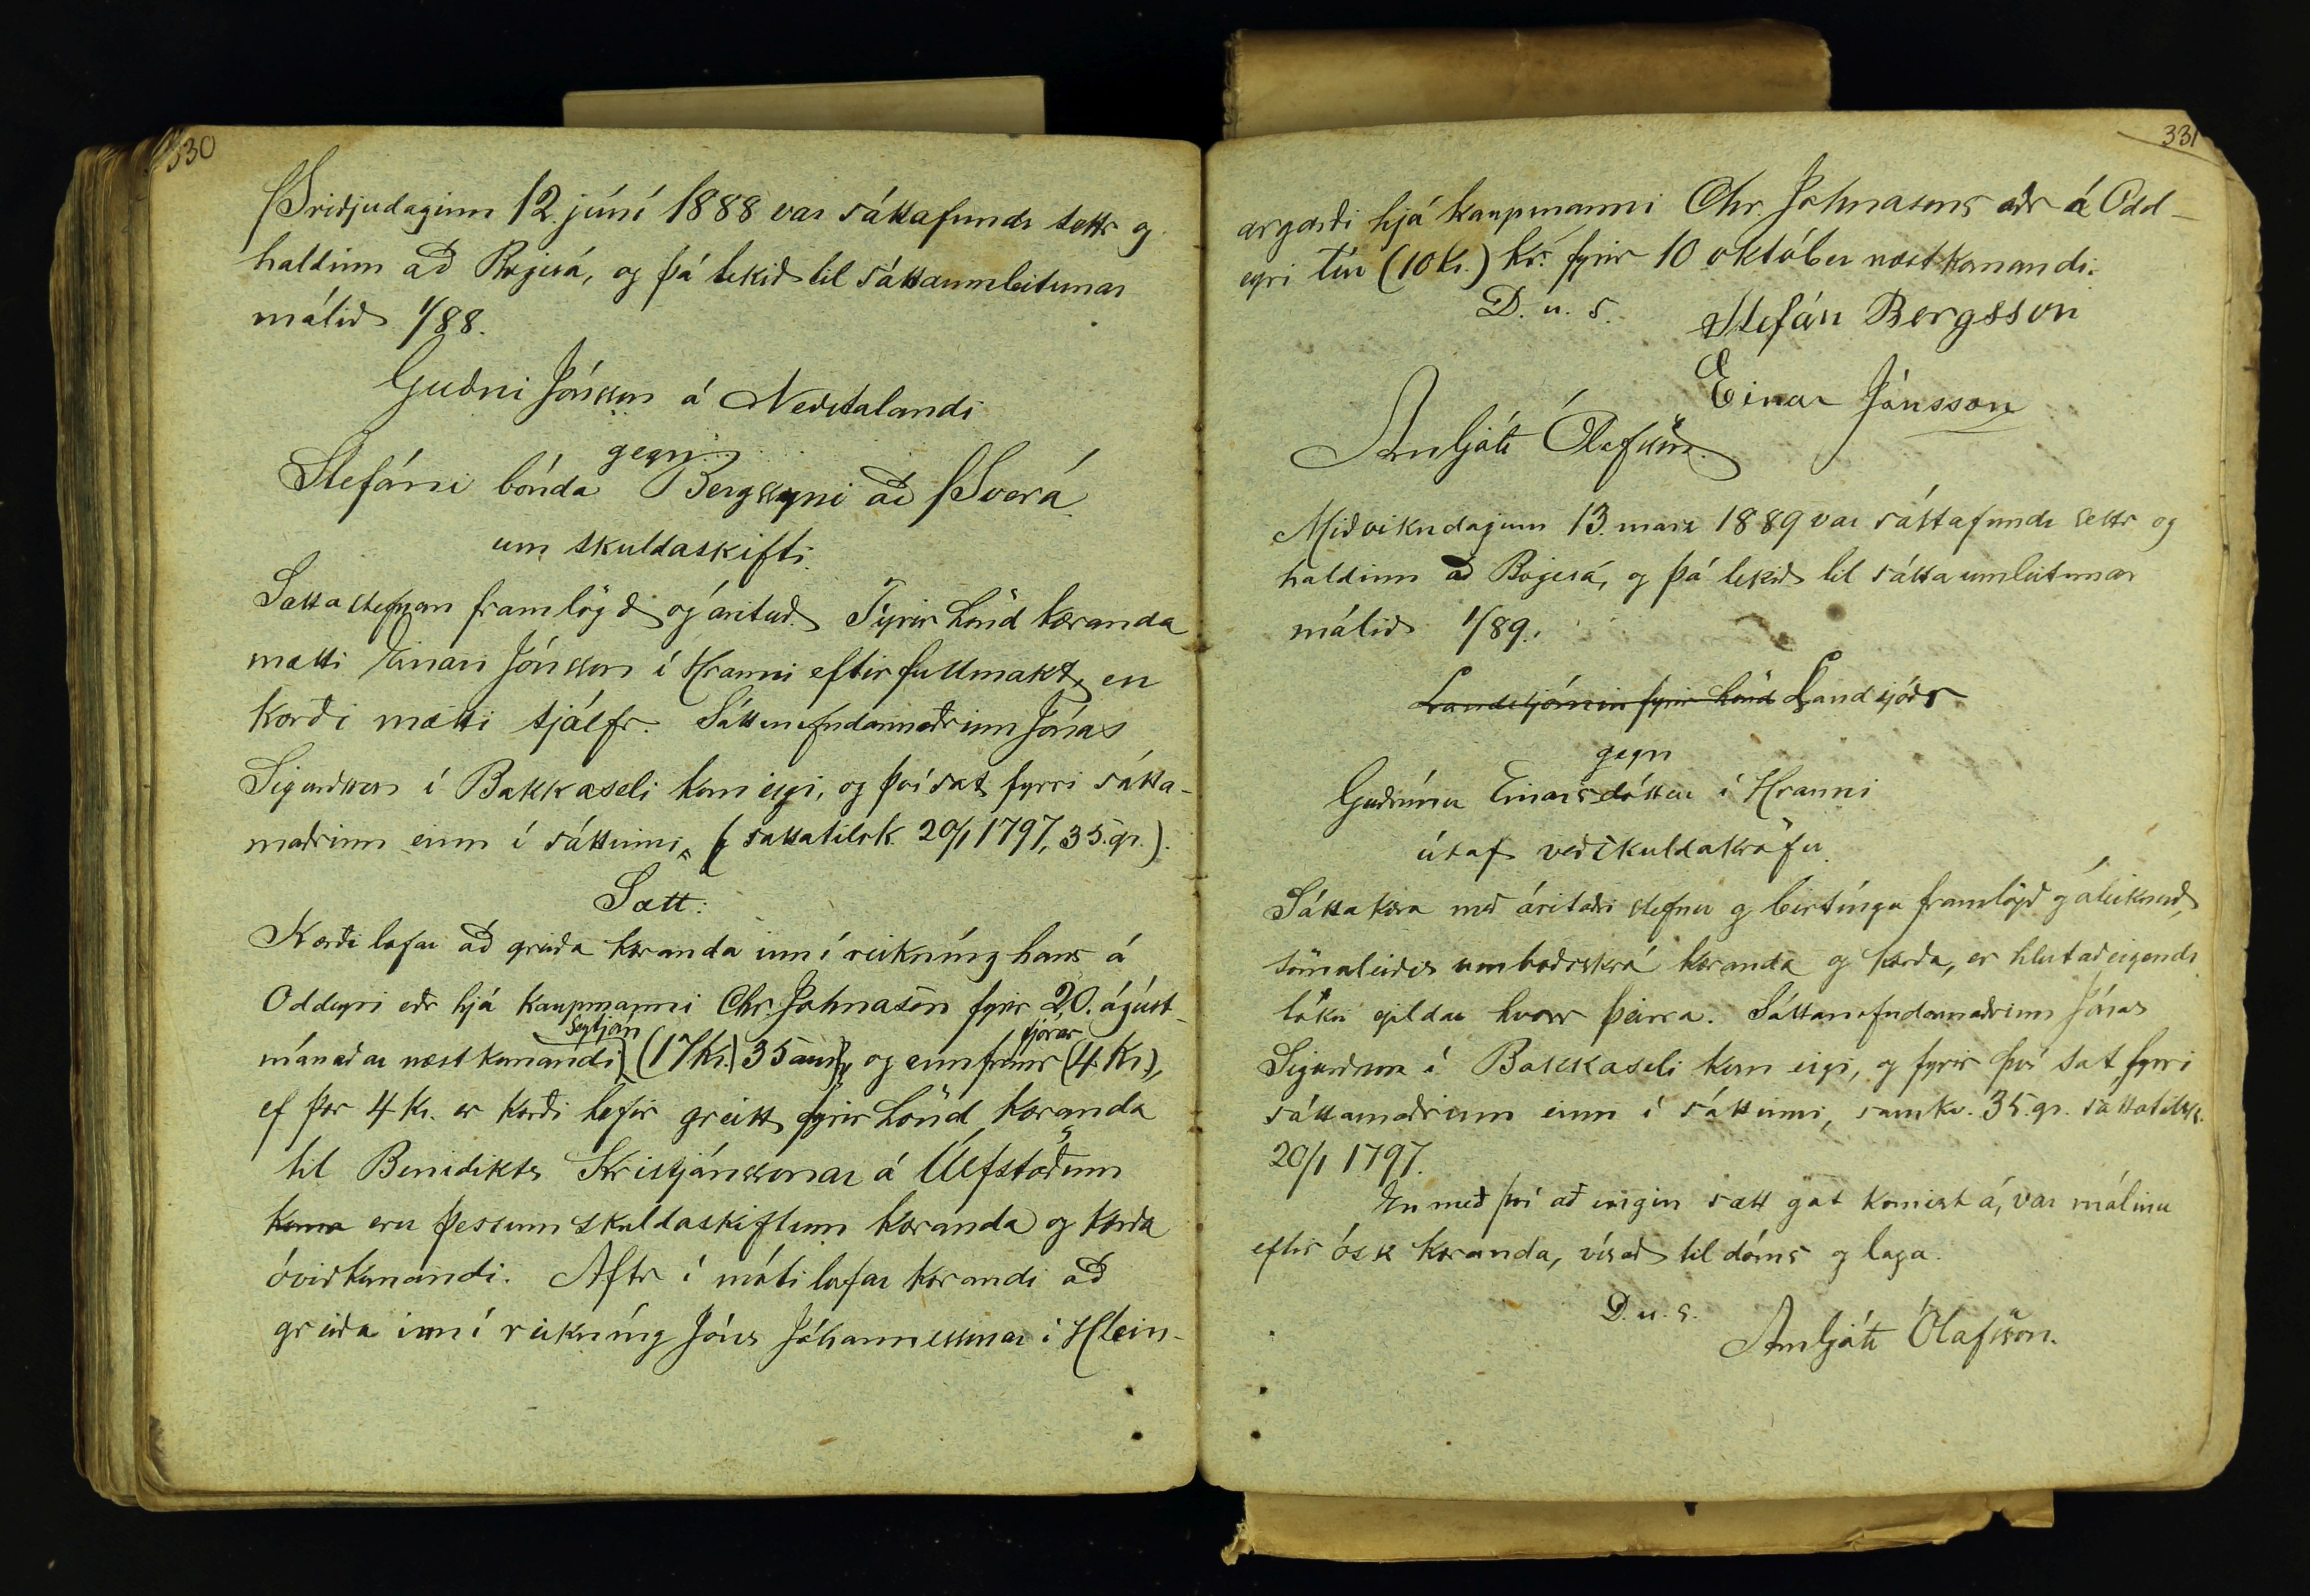 330
Þriðjudaginn 12. júní 1888 var sáttafundr settr og
haldinn að Bægisá, og þá tekið til sáttaumleitunar
málið 1/88.
Guðni Jónsson á Neðstalandi
gegn
Stefáni bónda Bergssyni að Þverá
um skuldaskifti.
Sáttastefnan framlögð og árituð. Fyrir hönd kæranda
mætti Einar Jónsson í Hrauni eftir fullmakt, en
kærði mætti sjálfr. Sáttanefndarmaðrinn Jónas
Sigurðsson í Bakkaseli kom eigi, og því sat fyrri sátta-
maðrinn einn í sáttinni, (sáttatilsk. 20/1 1797, 35. gr.).
Sætt:
Kærði lofar að greiða kæranda inn í reikníng hans á
Oddeyri eðr hjá kaupmanni Chr. Johnasen fyrir 20. ágúst-
mánaðar næstkomandi seytján (17 kr.) 35 aur, og ennfremr fjórar (4 kr.),
ef þær 4 kr. er kærði hefir greitt fyrir hönd kæranda
til Benidikts Kristjánssonar á Úlfstöðum
koma eru þessum skuldaskiftum kæranda og kærða
óviðkomandi. Aftr í móti lofar kærandi að
greiða inn í reikníng Jóns Jóhannessonar í Hlein-
331
argarði hjá kaupmanni Chr. Johnasens eðr á Odd-
eyri tíu (10 kr.) kr. fyrir 10 október næstkomandi.
D. u. s. Stefán Bergsson
Einar Jónsson
Arnljótr Ólafsson.
Miðvikudaginn 13. marz 1889 var sáttafundr settr og
haldinn að Bægisá, og þá tekið til sáttaumleitunar
málið 1/89.
Landstjórnin fyrir hönd Landsjóðs
gegn
Guðrúnu Einarsdóttur í Hrauni
útaf veðskuldakröfu.
Sáttakæra með áritaðri stefnu og birtíngu framlögð og áteiknuð,
sömuleiðis umboðsskrá kæranda og kærða, er hlutaðeigendr
tóku gildar hvorr þeirra. Sáttanefndarmaðrinn Jónas
Sigurðsson í Bakkaseli kom eigi, og fyrir því sat fyrri
sáttamaðrinn einn í sáttinni, samkv. 35. gr. sáttatilsk.
20/1 1797.
En með því að eingin sætt gat komist á, var málinu
eftir ósk kæranda, vísað til dóms og laga.
D. u. s.
Arnljótr Ólafsson.